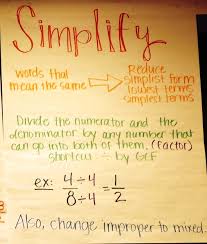 Simplify
words that
mean the same
Reduce
simplist form
lowest terms
simplest terms
Divide the numerator and the
denominator by any number that
can go into both of them. (Factor)
shortcut ÷ by GCF
ex: 4÷4 = 1
8÷4 2
Also, change improper to mixed.